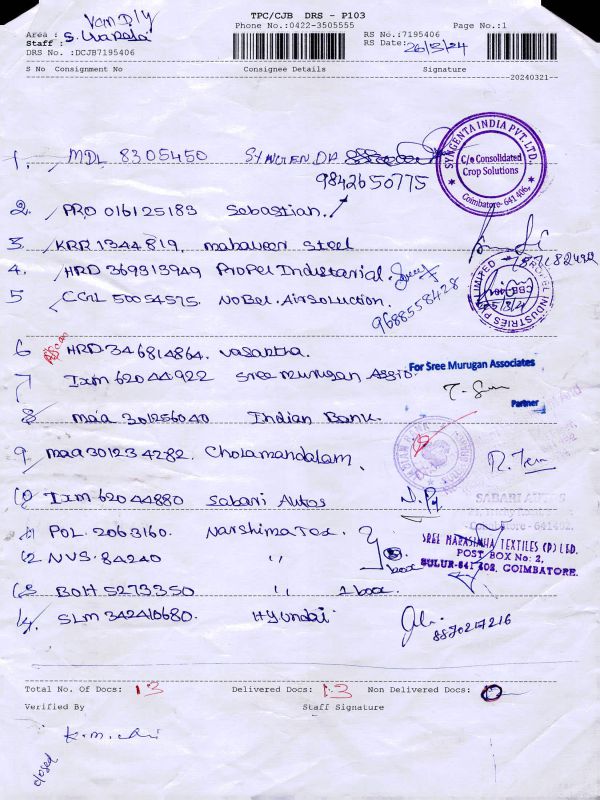 TPC/CJB DRS - P103
Van Dly
Phone No.:0422-3505555
Page No.:1
Area :
RS No.:7195406
Staff :
RS Date: 26/3/24
DRS No. :DCJB7195406
S No Consignment No Consignee Details Signature
20240321
1, MDL 8305450 SYNGEN.DA
9842650775
SYNGENTA INDIA PVT. LTD.
C/o Consolidated
Crop Solutions
Coimbatore- 641 406.
2 PRO 016125183 Sebastian.
3. KRR 1344819. mahaveer Steel
4. HRD 369913949 Propel Industarial.
5 CGL 50054575. NoBel. Airsoluction.
9688558428
PROPEL INDUSTRIES P LIMITED
6 HRD 346814864. vasantha.
7 Ixm 62044922 Sree murugan Assio.
For Sree Murugan Associates
Partner
8 maa 301256040 Indian Bank.
9 maa 301234282 Cholamandalam.
10 Ixm 62044880 Sabari Autos
SABARI AUTOS
Coimbatore - 641402.
11 POL. 2063160. Narshima Tex.
12 NVS. 84240 ''
box
SREE NARASIMHA TEXTILES (P) LTD.
POST BOX No: 2,
SULUR-641 402. COIMBATORE.
13 BOH 5273350 '' 1 box
14. SLM 342410680. Hyundai
8870217216
Total No. Of Docs: 13 Delivered Docs: 13 Non Delivered Docs: 0
Verified By Staff Signature
closed